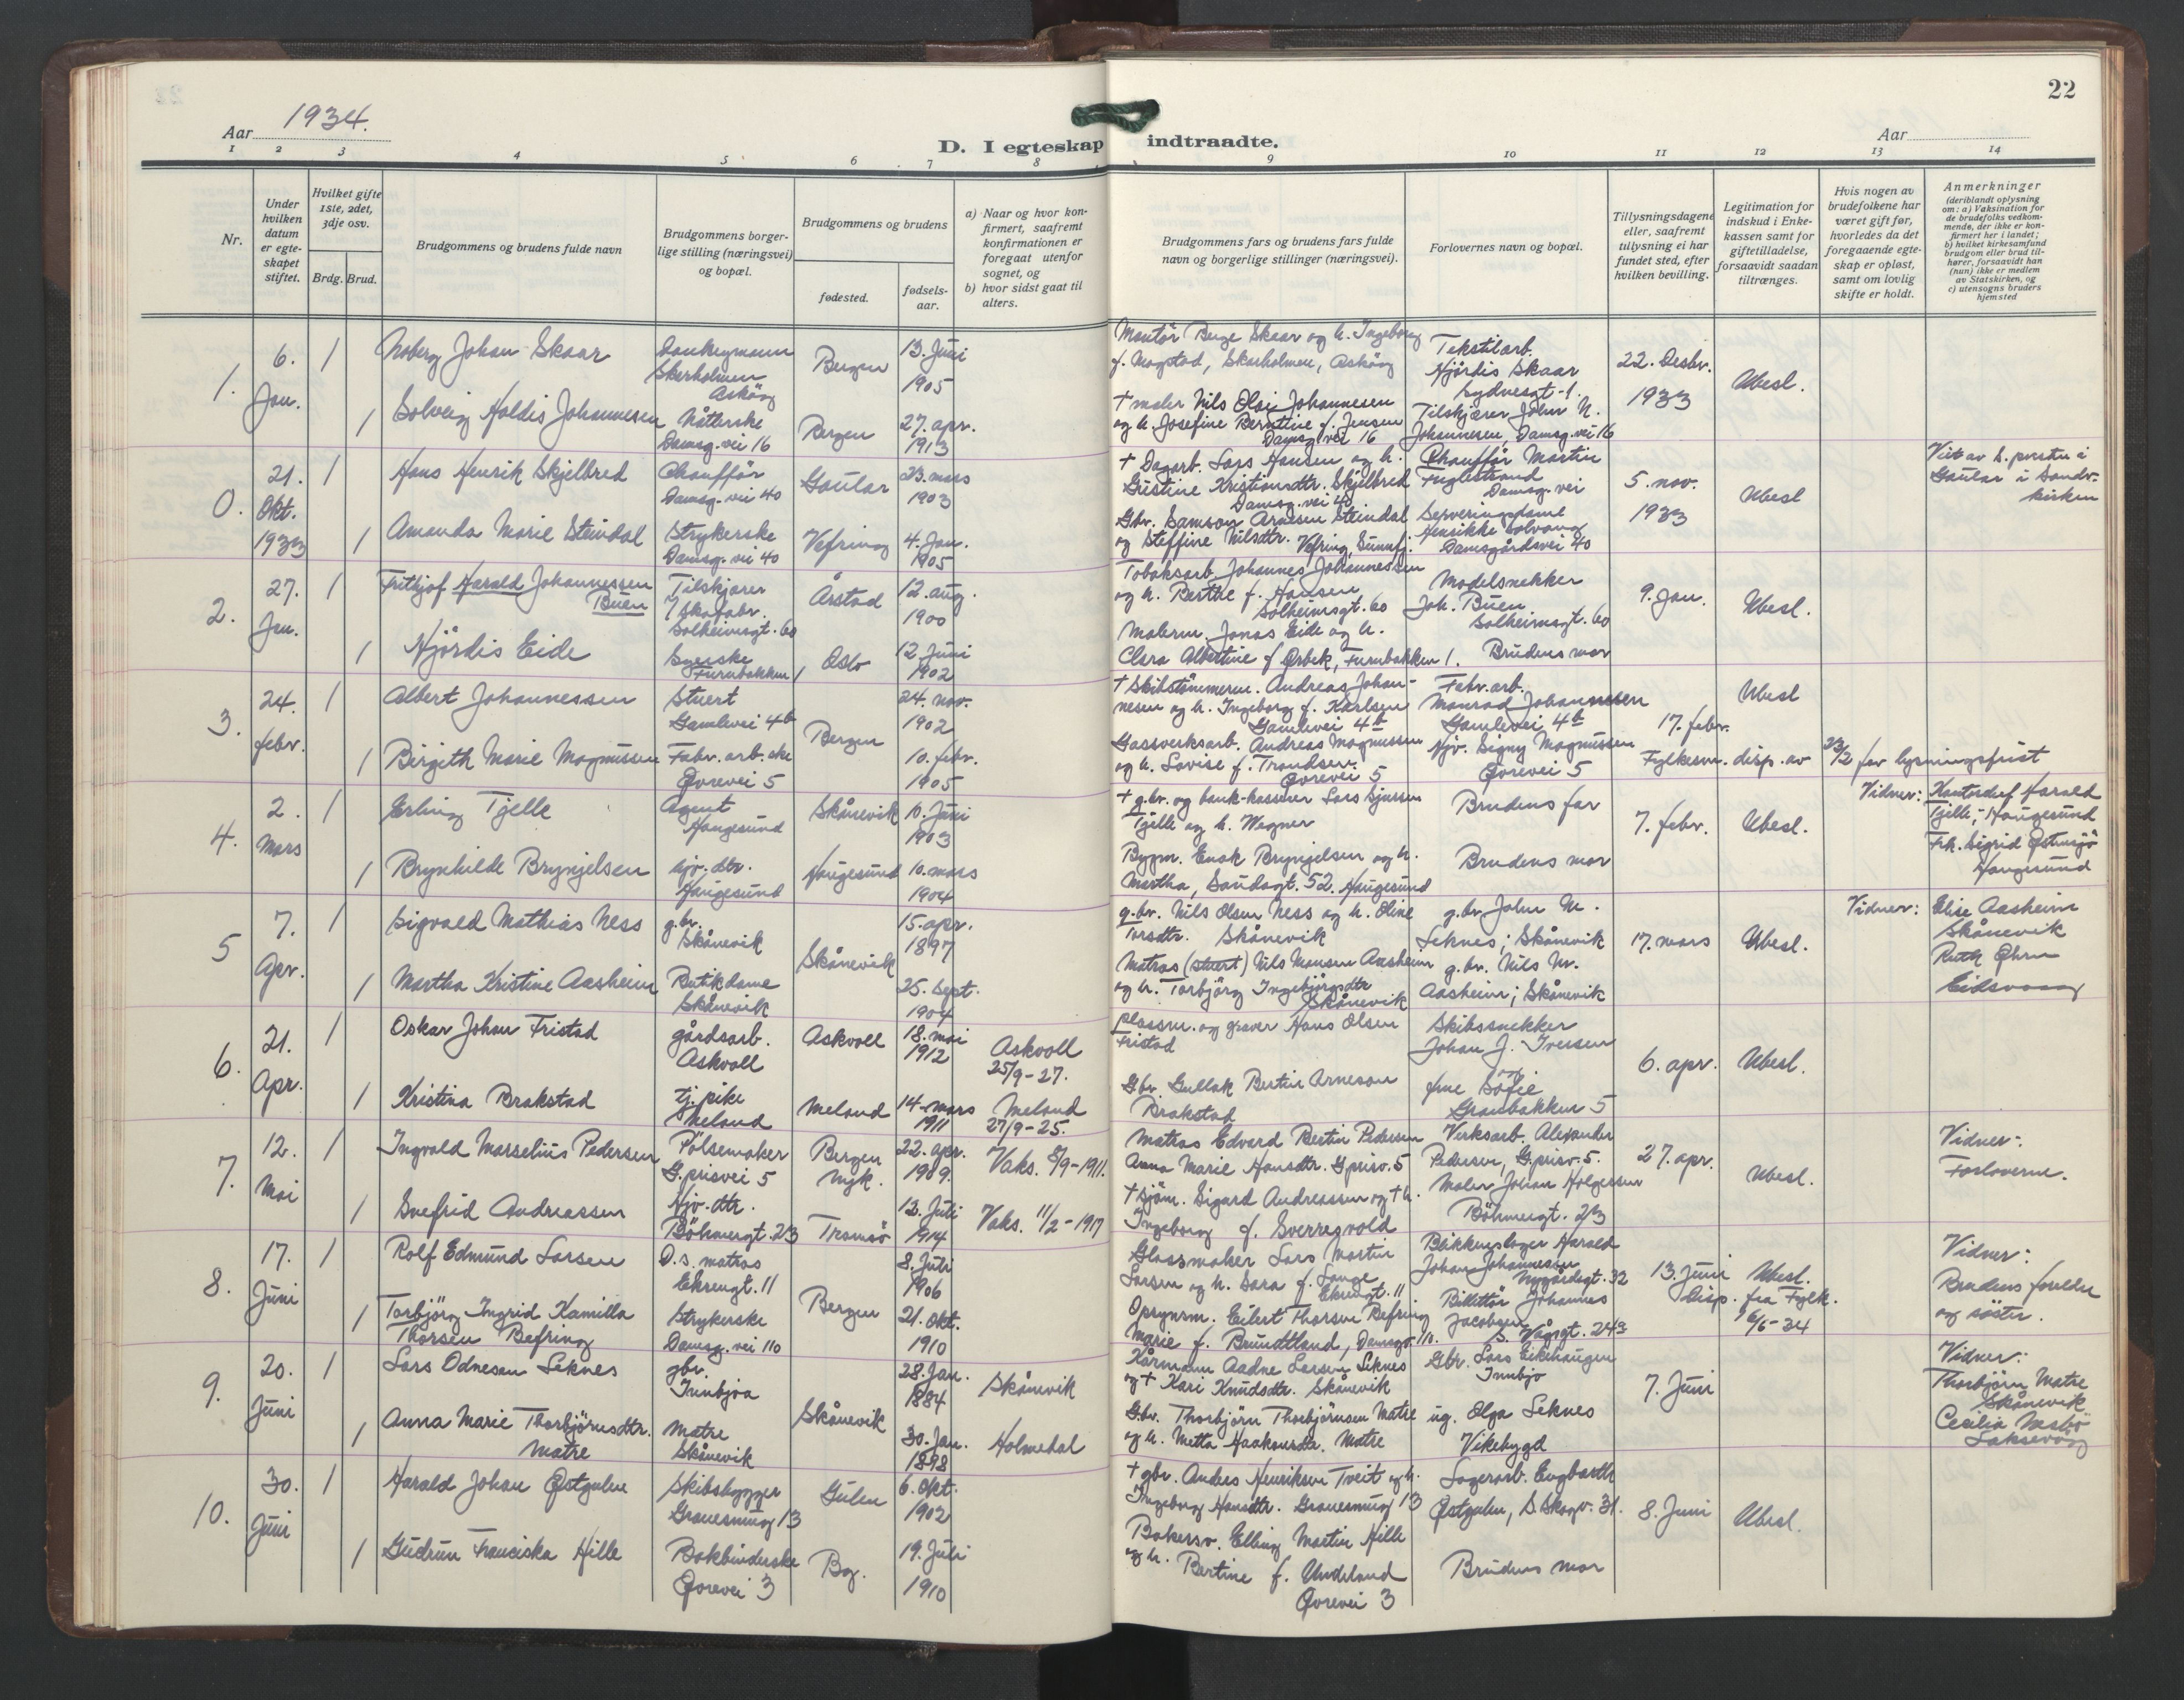 22
Aar 1934.
Aar
D. I egteskap indtraadte.
1 2 3 4 5 6 7 8 9 10 11 12 13 14
Nr.
Under hvilken datum er egteskapet stiftet.
Hvilket gifte 1ste, 2det, 3dje osv.
Brdg. Brud.
Brudgommens og brudens fulde navn
Brudgommens borgerlige stilling (næringsvei) og bopæl.
Brudgommens og brudens
fødested.
fødselsaar.
a) Naar og hvor konfirmert, saafremt konfirmationen er foregaat utenfor sognet, og
b) hvor sidst gaat til alters.
Brudgommens fars og brudens fars fulde navn og borgerlige stillinger (næringsvei).
Forlovernes navn og bopæl.
Tillysningsdagene eller, saafremt tullysning ei har fundet sted, efter hvilken bevilling.
Legitimation for indskud i Enkekassen samt for giftetilladelse, forsaavidt saadan tiltrænges.
Hvis nogen av brudefolkene har været gift før, hvorledes da det foregaaende egteskap er opløst, samt om lovlig skifte er holdt.
Anmerkninger (deriblandt oplysning om: a) Vaksination for de brudefolks vedkommende, der ikke er konfirmert her i landet; b) hvilket kirkesamfund brudgom eller brud tilhører, forsaavidt han (hun) ikke er medlem av Statskirken, og c) utensogns bruders hjemsted
1. 6. Jan. 1 Johan Skaar
Skarholmen Askøy
Bergen 13. Juni 1905
Montör Berge Skaar og h. Ingeborg f. Mogstad, Skarholmen, Askøy
Tekstilarb. Hjördis Skaar Sydnesgt. 1.
22. Desbr. 1933 Ubesl.
1 Solveig Haldis Johannesen
Damsg. vei 16
Bergen 27. apr. 1913
† maler Nils Olai Johannesen og h. Josefine Berntine f. Jensen Damsg. vei 16
Tilskjærer John N. Johannesen, Damsg. vei 16
0. 21. Okt. 1933 1 Hans Henrik Skjelbred
Chauffør Damsg. vei 40
Gaular 23. mars 1903
† Dagarb. Lars Hansen og h. Gustine Kristiansdtr. Skjelbred Damsg. vei 40
Chauffør Martin Fuglestrand Damsg. vei
5. nov. 1933 Ubesl
Viet av s. presten i Gaular i Sandv. kirken
1 Amanda Marie Steindal
Strykerske Damsg. vei 40
Vefring 4. Jan. 1905
Gbr. Samson Arnesen Steindal og Steffine Nilsdtr. Vefring, Sunnfj.
Serveringsdame Henrikke Solvang Damsgårdsvei 40
2. 27. Jan. 1 Frithjof Harald Johannessen Buen
Tilskjærer i skofabr. Solheimsgt. 60
Årstad 12. aug. 1900
Tobaksarb. Johannes Johannessen og h. Berthe f. Hansen Solheimsgt. 60
Modelsnekker Joh. Buen Solheimsgt. 60
9. Jan. Ubesl.
1 Hjördis Eide
Syerske Furubakken 1
Oslo 12. Juni 1902
Malerm. Jonas Eide og h. Clara Albertine f. Ørbek, Furubakken 1.
Brudens mor
3. 24. febr. 1 Albert Johannessen
Stuert Gamlevei 4b
Bergen 24. nov. 1902
† Skibstömmerm. Andreas Johannesen og h. Ingeborg f. Karlsen Gamlevei 4b
Fabr.arb. Monrad Johannessen Gamlevei 4b
17. febr. Ubesl
1 Birgith Marie Magnussen
Fabr. arb.ske Øvrevei 5
10. febr. 1905
Gassverksarb. Andreas Magnussen og h. Lovise f. Trondsen. Øvrevei 5
Hjv. Signy Magnussen Øvrevei 5
Fylkesm. disp. av 23/2 for lysningsfrist
4. 2. Mars 1 Erling Tjelle
Agent Haugesund
Skånevik 10. Juni 1903
† g.br. og bank-kasserer Lars Tjelle og h. Wagner
Brudens far
7. febr. Ubesl.
Vidner: Kontorchef Harald Tjelle, Haugesund
Frk. Sigrid Østensjö Haugesund
1 Brynhilde Brynjelsen
hjv. dtr. Haugesund
Haugesund 10. mars 1904
Bygm. Enok Brynjelsen og h. Martha, Sundagt. 52. Haugesund
Brudens mor
5 7. Apr. 1 Sigvald Mathias Ness
g.br. Skånevik
Skånevik 15. apr. 1897
g.br. Nils Olsen Ness og h. Oline Torsdtr. Skånevik
g.br. John M. Seknes; Skånevik
17. mars Ubesl.
Vidner: Elise Aasheim Skånevik
Ruth Øhrn Eidsvaag
1 Martha Kristine Aasheim
Butikdame Skånevik
25. Sept. 1904
Matros (stuert) Nils Monsen Aasheim og h. Torbjörg Ingebjørgsdtr Skånevik
g.br. Nils N. Aasheim; Skånevik
6. 21. Apr. 1 Oskar Johan Fristad
gårdsarb. Askvoll
Askvoll 18. mai 1912
Askvoll 25/9-27.
plassm. og graver Hans Olsen Fristad
Skibssnekker Johan J. Iversen
6. apr. Ubesl.
1 Kristina Brakstad
tj. pike Meland
Meland 14. mars 1911
Meland 27/9-25.
Gbr. Gullak Bertin Arneson Brakstad
frue Sofie Granbakken 5
7. 12. Mai 1 Ingvald Marselius Pedersen
Pølsemaker G. prisvei 5
Bergen Nyk. 22. apr. 1909.
Vaks. 8/9-1911.
Matros Edvard Bertin Pedersen Anna Marie Hansdtr. G.prisv. 5
Verksarb. Alexander Pedersen, G.prisv. 5.
27. apr. Ubesl.
Vidner: Forloverne.
1 Svefrid Andreassen
Hjv. dtr. Böhmergt. 23
Tromsö 12. Juli 1914
Vaks. 11/2-1917
† sjöm. Sigurd Andreassen og † h. Ingeborg f. Sverresvold
Maler Johan Holgersen Böhmergt. 23
8. 17. Juni 1 Rolf Edmund Larsen
D.s. matros Ekrengt. 11
Bergen 8. Juli 1906
Glassmaker Lars Martin Larsen og h. Sara f. Lange Ekrengt. 11
Blikkenslager Harald Johan Johannessen Nygårdsgt. 32
13. Juni Ubesl.
Disp. fra Fylk. 16/6-34
Vidner: Brudens forelder og søster.
1 Torbjörg Ingrid Kamilla Thorsen Befring
Strykerske Damsg. vei 110
21. Okt. 1910
Opsynsm. Eilert Thorsen Befring Marie f. Brundtland, Damsgv. 110.
Billettør Johannes Jacobsen S. Vågsgt. 24a
9. 20. Juni 1 Lars Odneson Seknes
gbr. Innbjoa
Skånevik 28. Jan. 1884
Skånevik
Kårmann Aadne Larsen Seknes og † Kari Knudsdtr. Skånevik
Gbr. Lars Eikehaugen Innbjo
7. Juni
Vidner: Thorbjörn Matre Skånevik
Cecilia Laksevåg
1 Anna Marie Thorbjörnsdtr. Matre
Matre Skånevik
30. Jan. 1898
Holmedal
G.br. Thorbjörn Thorbjörnsen Matre og h. Metta Haakonsdtr. Matre
ug. Olga Seknes Vikebygd
10. 30. Juni 1 Harald Johan Østgulen
Skibsbygger Granesmug 13
Gulen 6. Okt. 1902
† gbr. Anders Henriksen Tveit og h. Ingeborg Hansdtr. Granesmug 13
Lagerarb. Engbarth Østgulen, S. Skogv. 31.
8. Juni Ubesl.
1 Gudrun Franciska Hille
Bokbinderske Øvrevei 3
Bg. 19. Juli 1910
Bakersv. Elling Martin Hille og h. Bertine f. Undeland Øvrevei 3
Brudens mor